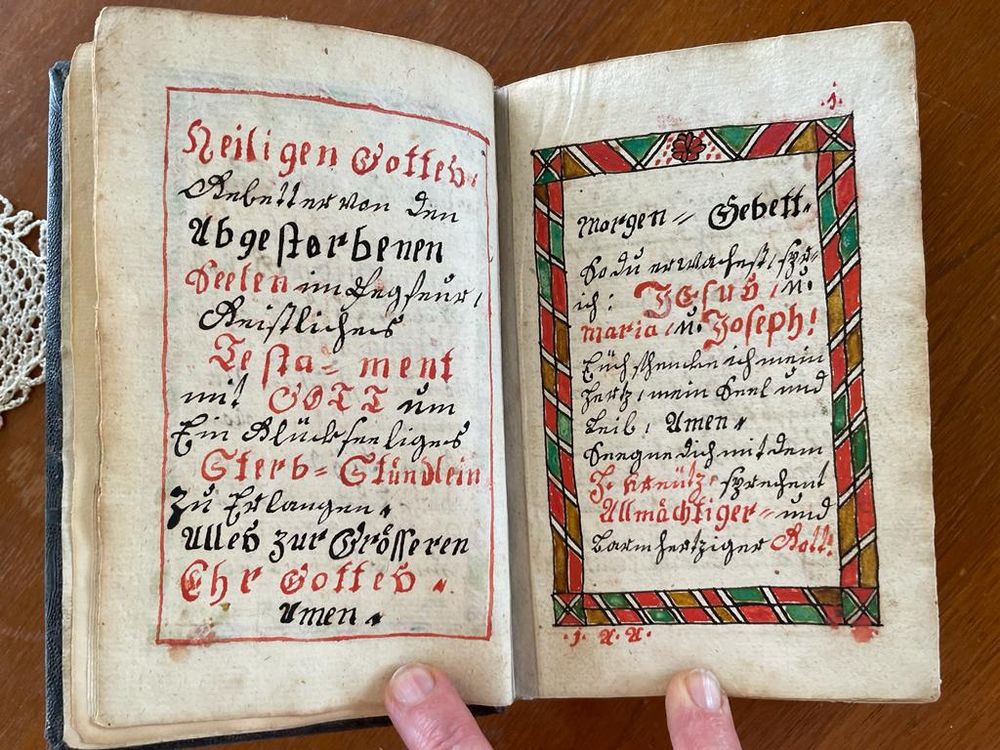 Heiligen Gottes.
Gebetter von den
Abgestorbenen
Seelen im Fegfeur,
Geistliches
Testa= ment
mit GOTT um
Ein Glückseeliges
Sterb= Stündlein
Zu Erlangen.
Alles zur Grösseren
Ehr Gottes.
Amen.
.1.
Morgen = Gebett.
So du erwachest, spr=
ich: JEsus, u.
Maria, u. Joseph!
Eüch schencke ich mein
Hertz, mein Seel und
Leib, Amen.
Seegne dich mit dem
H. Kreütz, sprechent
Allmächtiger = und
Barmhertziger Gott!
.J. A. A.